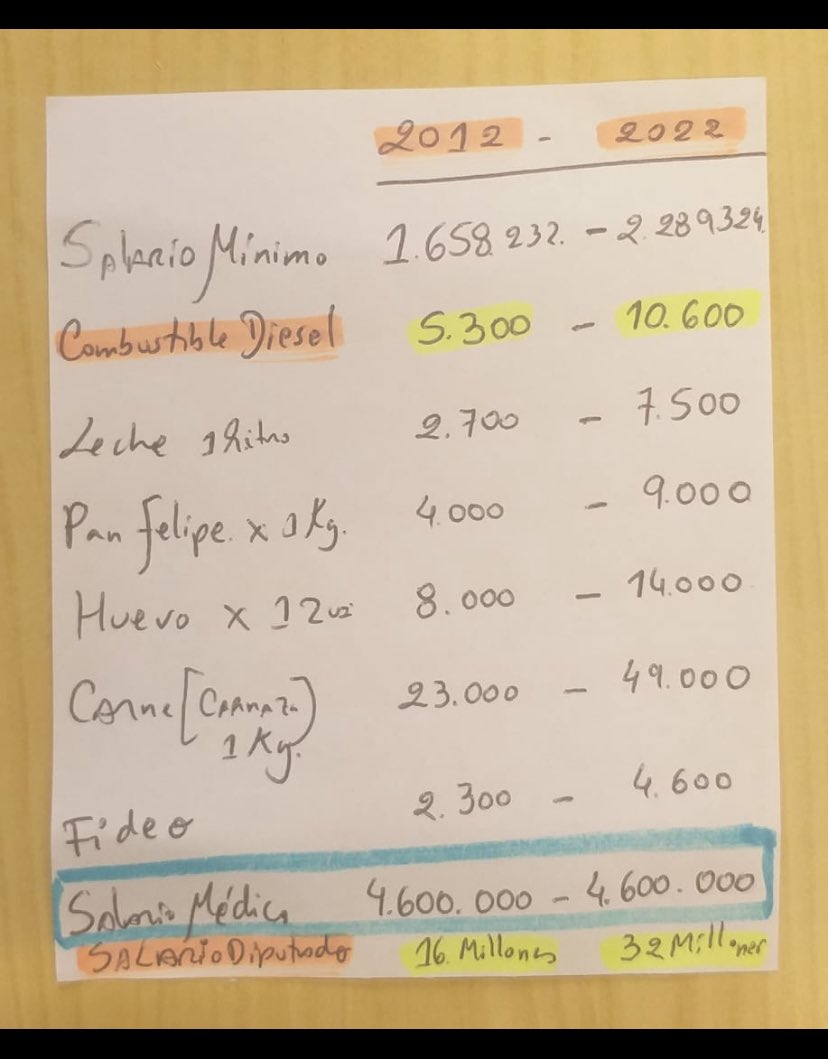 2012 - 2022
Salario Mínimo 1.658.232. - 2.289324.
Combustible Diesel 5.300 - 10.600
Leche 1 litro 2.700 - 7.500
Pan felipe. x 1 Kg. 4.000 - 9.000
Huevo x 12 8.000 - 14.000
Carne [Carnaza) 23.000 - 49.000
1 Kg.
Fideo 2.300 - 4.600
Salario Médico 4.600.000 - 4.600.000
SALARIO Diputado 16 Millones 32 Millones